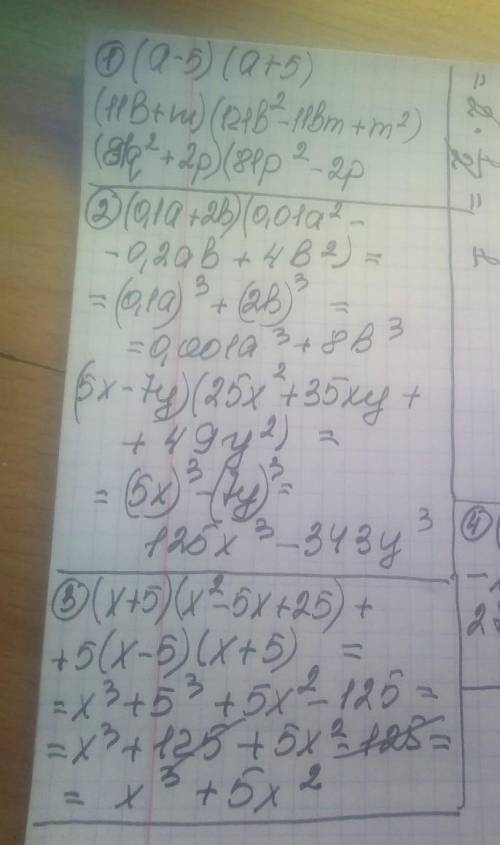 ① (a-5)(a+5)
(11b+m)(121b²-11bm+m²)
(9q²+2p)(81p²-2p
② (0,1a+2b)(0,01a²-
-0,2ab+4b²)=
=(0,1a)³+(2b)³=
=0,001a³+8b³
(5x-7y)(25x²+35xy+
+49y²)=
=(5x)³-(7y)³=
125x³-343y³
③ (x+5)(x²-5x+25)+
+5(x-5)(x+5)=
=x³+5³+5x²-125=
=x³+125+5x²-125=
=x³+5x²
④